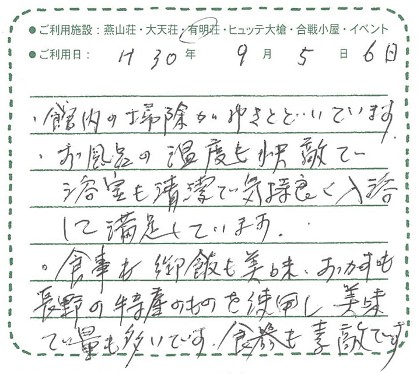 ●ご利用施設：燕山荘・大天荘・有明荘・ヒュッテ大槍・合戦小屋・イベント
●ご利用日：H30年9月5日6日
・館内の掃除がゆきとどいています
・お風呂の温度も快敵で
浴室も清潔で気持良く入浴
して満足しています.
・食事も御飯も美味、おかずも
長野の特産のものを使用し美味
で量も多いです。食器も素敵です